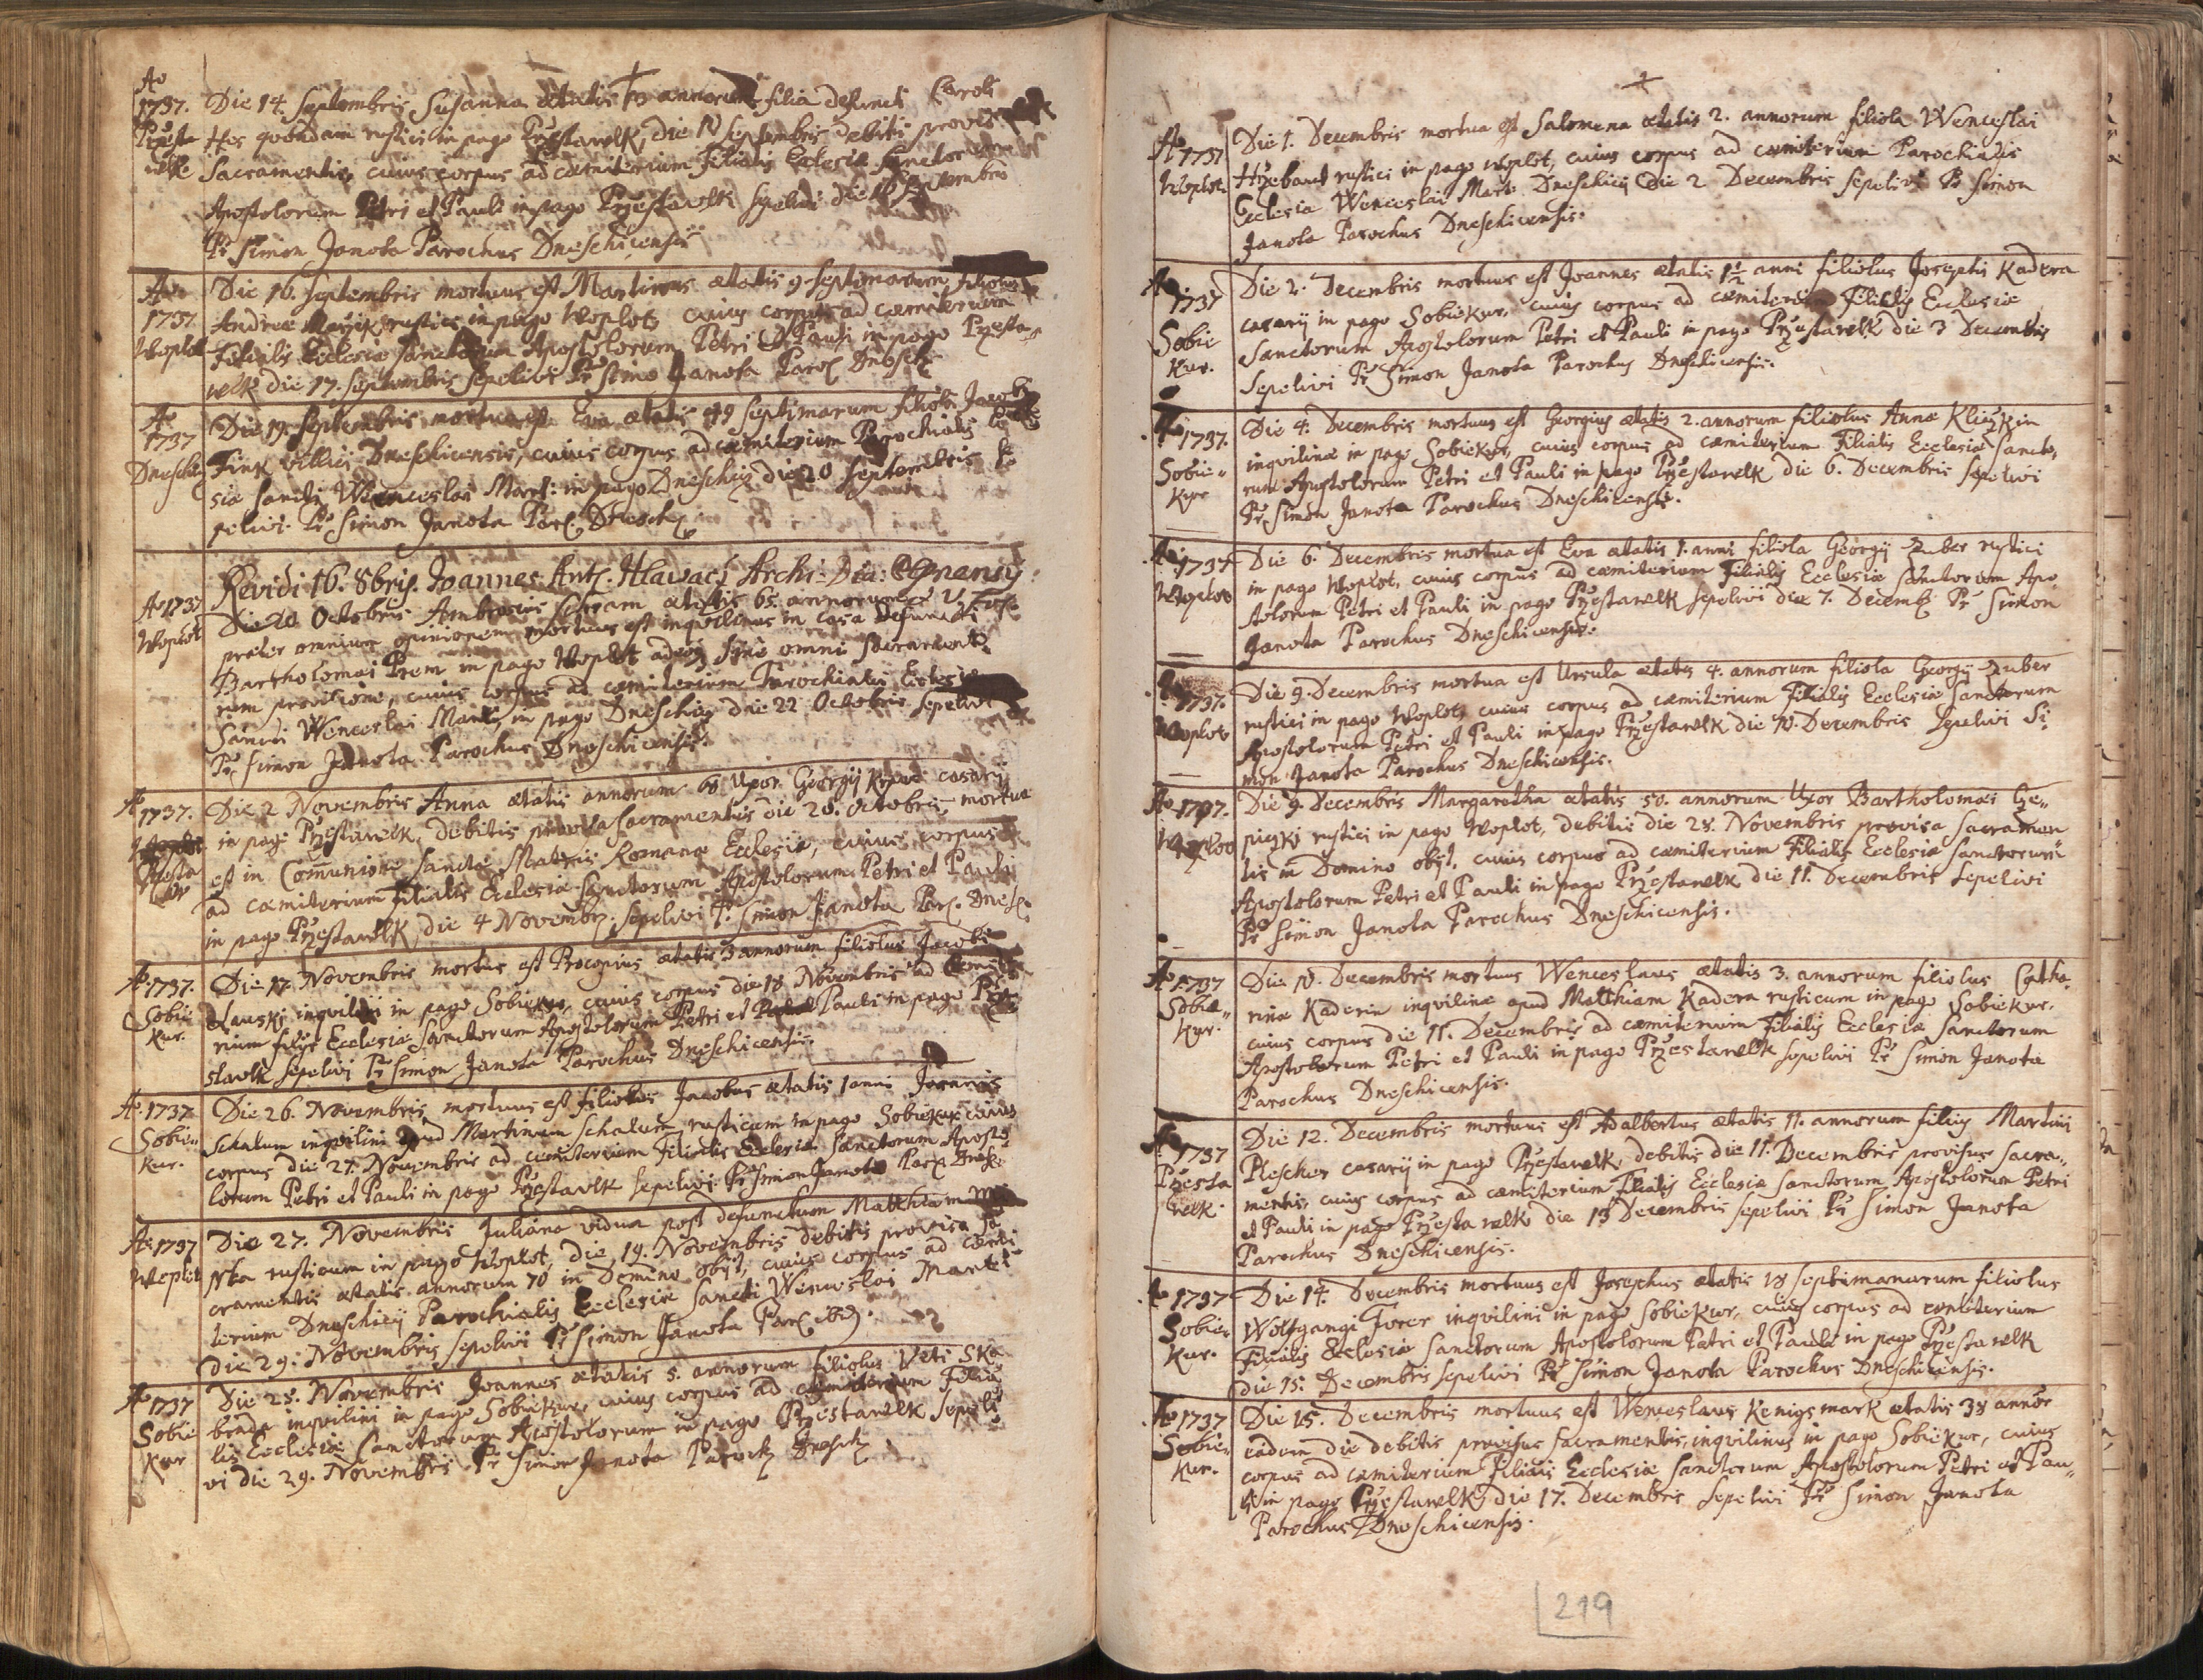 Ao
1737.
Przesta
welk
Die 14. Septembris Susanna ætatis annorum filia defuncti Caroli
Hes quondam rustici in pago Przestawlk, die Septembris debitis provisa
Sacramentis, cuius corpus ad cæmiterium Filialis Eclesiæ Sanctorum
Apostolorum Petri et Pauli in pago Przestawlk sepelivi die Septembris
Pr Simon Janota Parochus Dneschicensis
Ao
1737
Woplot
Die 16. Septembris mortuus est Martinus ætatis 9 septimarum filiolus
Andreæ rustici in pago Woplot, cuius corpus ad cæmiterium
Filialis Ecclesiæ Sanctorum Apostolorum Petri et Pauli in pago Przesta=
welk die 17. Septembris sepelivi Pr Simo Janota Paro Dnesch
Ao
1737
Dneschi
Die 19. Septembris mortua est Eva ætatis 49 septimarum filiola Jacobi
Fink villici Dneschicensis, cuius corpus ad cæmiterium Parochialis Eccle
siæ Sancti Wenceslai Mart: in pago Dneschiz die 20 Septembris se
pelivi. Pr Simon Janota Par. Dnesch
Revidi 16. 8bris. Joannes Ant. Hlawacž Archi-Dia:
Ao 1737
Woplot
Die 20 Octobris Ambrosius Schram ætatis 65. annorum
præter omnium opinionem mortuus est inquilinus in casa defuncti
Bartholomæi Przem in pago Woplot adeoq sine omni Sacramento
rum provisione, cuius corpus ad cæmiterium Parochialis Eclesiæ
Sancti Wenceslai Mart, in pago Dneschiz die 22 Octobris sepelivi
Pr Simon Janota Parochus Dneschicensis.
Ao 1737.
Przesta
welk
Die 2 Novembris Anna ætatis annorum 68 Uxor Georgij casarij
in pago Przestawelk, debitis provisa sacramentis die 28. Octobris mortua
est in Communione Sanctæ Matris Romanæ Ecclesiæ, cuius corpus
ad cæmiterium Filialis Eclesiæ Sanctorum Apostolorum Petri et Pauli
in pago Przestawelk, die 4 Novemb. sepelivi Pr. Simon Janota Par. Dnesch.
Ao. 1737.
Sobie
kur.
Die 17. Novembris mortus est Procopius ætatis 3 annorum filiolus Jacobi
inquilini in pago Sobiekur, cuius corpus die 18 Novembris ad cæmite
rium filiæ Ecclesiæ Sanctorum Apostolorum Petri et Pauli in pago Prze
stawlk sepelivi Pr Simon Janota Parochus Dneschicensis.
Ao. 1737
Sobie=
kur.
Die 26. Novembris mortuus est filiolus Jacobus ætatis 1 anni Joannis
Schalum inquilini apud Martinum Schalum rusticum in pago Sobiekur cuius
corpus die 27. Novembris ad cæmiterium Filialis Ecclesiæ Sanctorum Aposto
lorum Petri et Pauli in pago Przestavlk sepelivi Pr Simon Janota Par. Dnesch
Ao. 1737
Woplot
Die 27. Novembris Juliana vidua post defunctum Matthiam
rusticum in pago Woplot, die 19. Novembris debitis provisa Sa
cramentis ætatis annorum 70 in Domino obijt, cuius corpus ad cæmi
terium Dneschicij Parochialis Ecclesiæ Sancti Wenceslai Marti
die 29. Novembris sepelivi Pr Simon Janota Par. ibid.
Ao 1737
Sobie
kur
Die 28. Novembris Joannes ætatis 5. annorum filiolus Viti Ska
brada inquilini in pago Sobiekur, cuius corpus ad cæmiterium Filia
lis Ecclesiæ Sanctorum Apostolorum in pago Przestawelk sepeli
vi die 29. Novembris Pr Simon Janota Paroch Dnesch
Ao 1737
Woplot
Die 1. Decembris mortua est Salomena ætatis 2. annorum filiola Wenceslai
Hrzebaud rustici in pago Woplot, cuius corpus ad cæmiterium Parochialis
Ecclesiæ Wenceslai Mart: Dneschicij die 2 Decembris sepelivi Pr Simon
Janota Parochus Dneschicensis.
Ao 1737
Sobie
kur.
Die 2. Decembris mortuus est Joannes ætatis 1 1/2 anni filiolus Josephi Kadera
casarij in pago Sobiekur, cuius corpus ad cæmiterium Filialis Ecclesiæ
Sanctorum Apostolorum Petri et Pauli in pago Przestawelk die 3 Decembris
sepelivi Pr Simon Janota Parochus Dneschicensis.
Ao 1737.
Sobie=
kur
Die 4. Decembris mortuus est Georgius ætatis 2. annorum filiolus Annæ Kliczkin
inquilinæ in pago Sobiekur, cuius corpus ad cæmiterium Filialis Ecclesiæ Sancto,
rum Apostolorum Petri et Pauli in pago Przestawelk die 6. Decembris sepelivi
Pr. Simon Janota Parochus Dneschicensis.
Ao 1737
Woplot
Die 6. Decembris mortua est Eva ætatis 1. anni filiola Georgij Zuber rustici
in pago Woplot, cuius corpus ad cæmiterium Filialis Ecclesiæ Sanctorum Apo
stolorum Petri et Pauli in pago Przestawelk sepelivi die 7. Decemb Pr Simon
Janota Parochus Dneschicensis.
Ao 1737.
Woplot
Die 9. Decembris mortua est Ursula ætatis 4. annorum filiola Georgij Zuber
rustici in pago Woplot, cuius corpus ad cæmiterium Filialis Ecclesiæ Sanctorum
Apostolorum Petri et Pauli in pago Przestawelk die 10. Decembris sepelivi Si
mon Janota Parochus Dneschicensis.
Ao 1737.
Woplot
Die 9. Decembris Margaretha ætatis 50. annorum Uxor Bartholomæi Cze=
piczki rustici in pago Woplot, debitis die 28. Novembris provisa Sacramen
tis in Domino obijt, cuius corpus ad cæmiterium Filialis Ecclesiæ Sanctorum
Apostolorum Petri et Pauli in pago Przestawelk die 11. Decembris sepelivi
Pr Simon Janota Parochus Dneschicensis.
Ao 1737
Sobie=
kur.
Die 10. Decembris mortuus Wenceslaus ætatis 3. annorum filiolus Catha,
rinæ Kaderin inquilinæ apud Matthiam Kadera rusticum in pago Sobiekur.
cuius corpus die 11. Decembris ad cæmiterium Filialis Ecclesiæ Sanctorum
Apostolorum Petri et Pauli in pago Przestawelk sepelivi Pr Simon Janota
Parochus Dneschicensis.
Ao 1737
Przesta
welk.
Die 12. Decembris mortuus est Adalbertus ætatis 11. annorum filius Martini
Plescher casarij in pago Przestawelk, debitis die 11. Decembris provisus Sacra=
mentis, cuius corpus ad cæmiterium Filialis Ecclesiæ Sanctorum Apostolorum Petri
et Pauli in pago Przestawelk die 13 Decembris sepelivi Pr Simon Janota
Parochus Dneschicensis.
Ao 1737
Sobie=
kur.
Die 14. Decembris mortuus est Josephus ætatis 18 septimanarum filiolus
Wolfgangi Forer inquilini in pago Sobiekur, cuius corpus ad cæmiterium
Filialis Ecclesiæ Sanctorum Apostolorum Petri et Pauli in pago Przestawelk
die 15. Decembris sepelivi Pr Simon Janota Parochus Dneschicensis.
Ao 1737
Sobie=
kur.
Die 15. Decembris mortuus est Wenceslaus Kenigsmark ætatis 38 annor
eadem die debitis provisus Sacramentis, inquilinus in pago Sobiekur, cuius
corpus ad cæmiterium Filialis Ecclesiæ Sanctorum Apostolorum Petri et Pau=
li in pago Przestawelk, die 17. Decembris sepelivi Pr Simon Janota
Parochus Dneschicensis.
219